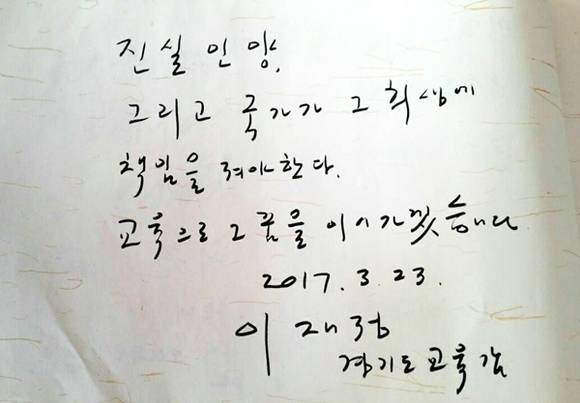 진실 인양,
그리고 국가가 그 희생에
책임을 져야한다.
교육으로 그 꿈을 이어가겠습니다
2017. 3. 23.
이 재 정
경기도 교육감